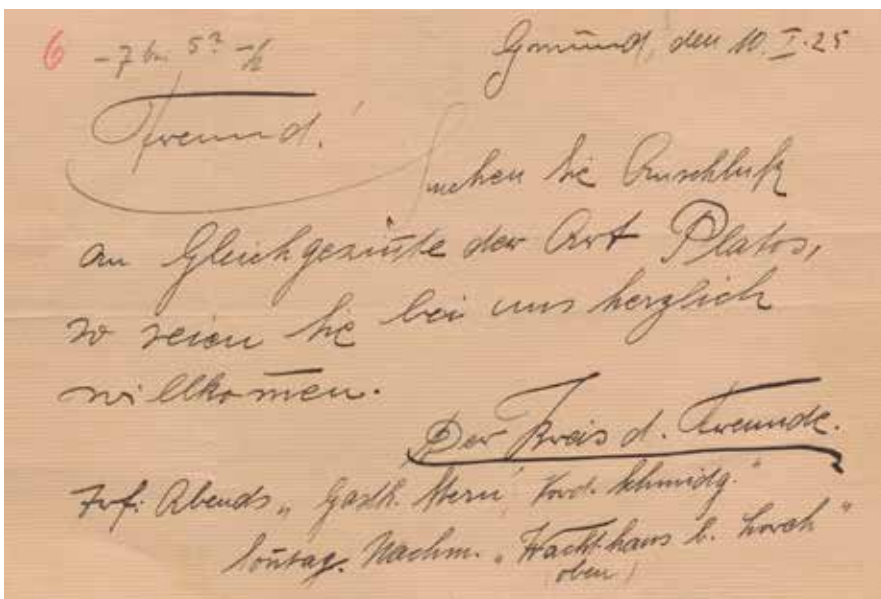 6 Gmünd, den 10. I. 25
Freund!
Suchen Sie Anschluß
an Gleichgesin̄te der Art Platos,
so seien Sie bei uns herzlich
willkom̄en.
Der Kreis d. Freunde.
Abends „Gasth. Stern", Vord. Schmidg."
Son̄tag. Nachm. „Wachthaus b. Lorch"
(oben)